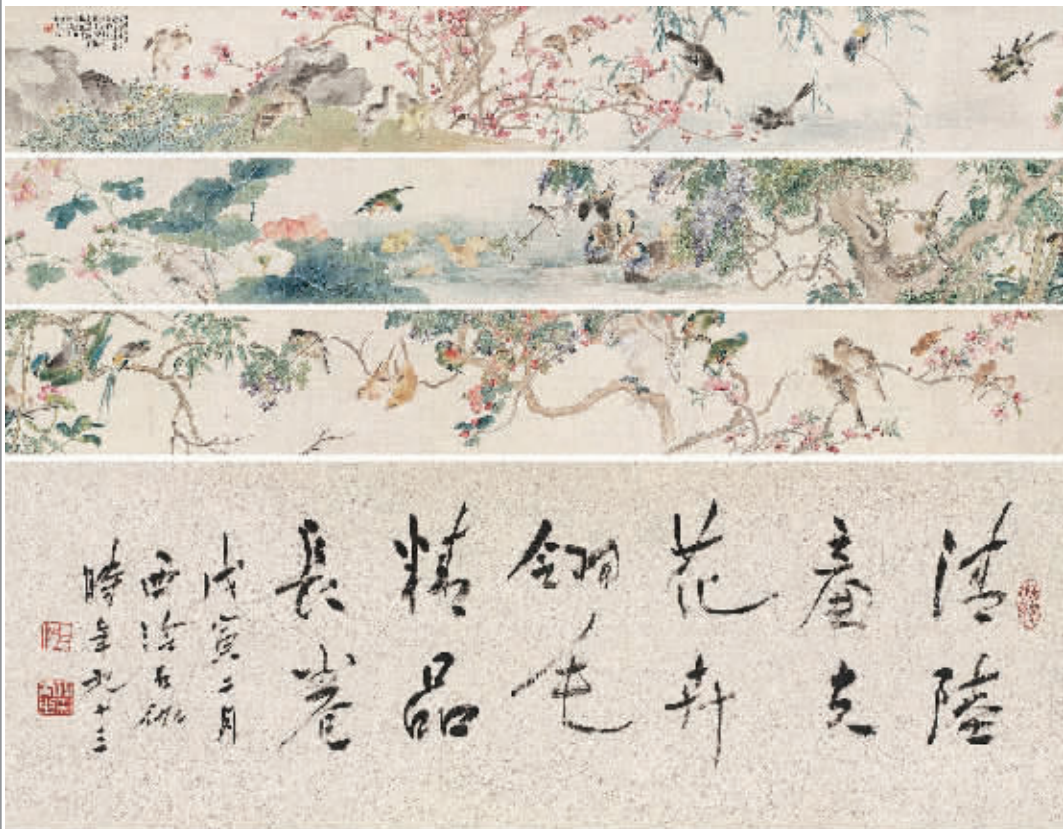 清陸
廉夫
花卉
翎毛
精品
長卷
戊寅二月
西泠石伽
時年九十三